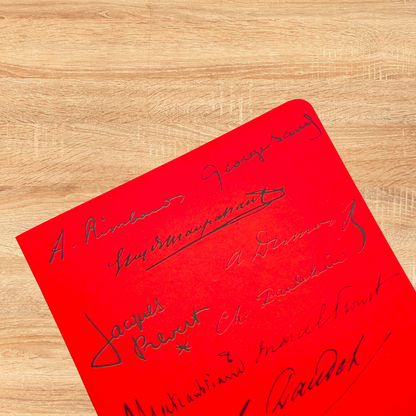 A. Rimbaud
George Sand
Guy de Maupassant
A Dumas
Jacques
Prévert
Ch. Baudelaire
Marcel Proust
Chateaubriand
A. Daudet